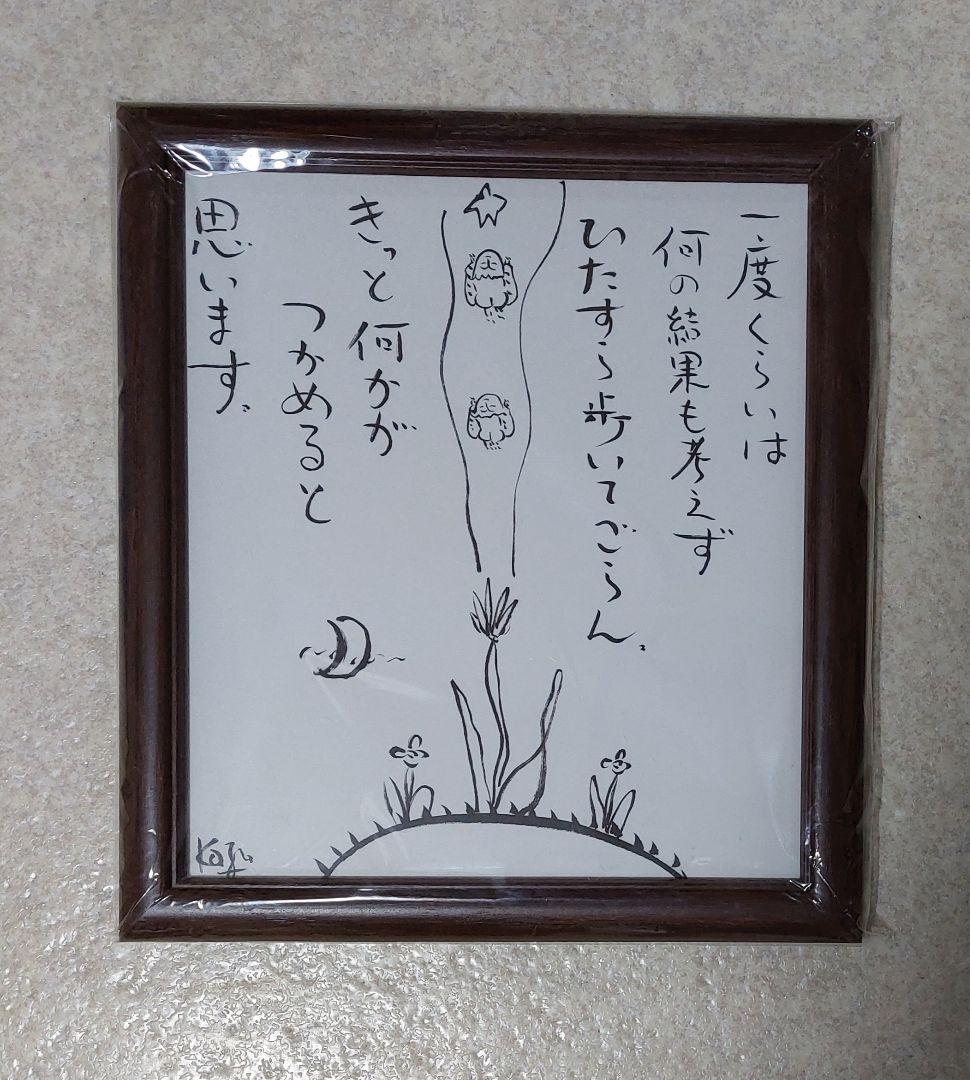 一度くらいは
何の結果も考えず
ひたすら歩いてごらん。
きっと何かが
つかめると
思います。